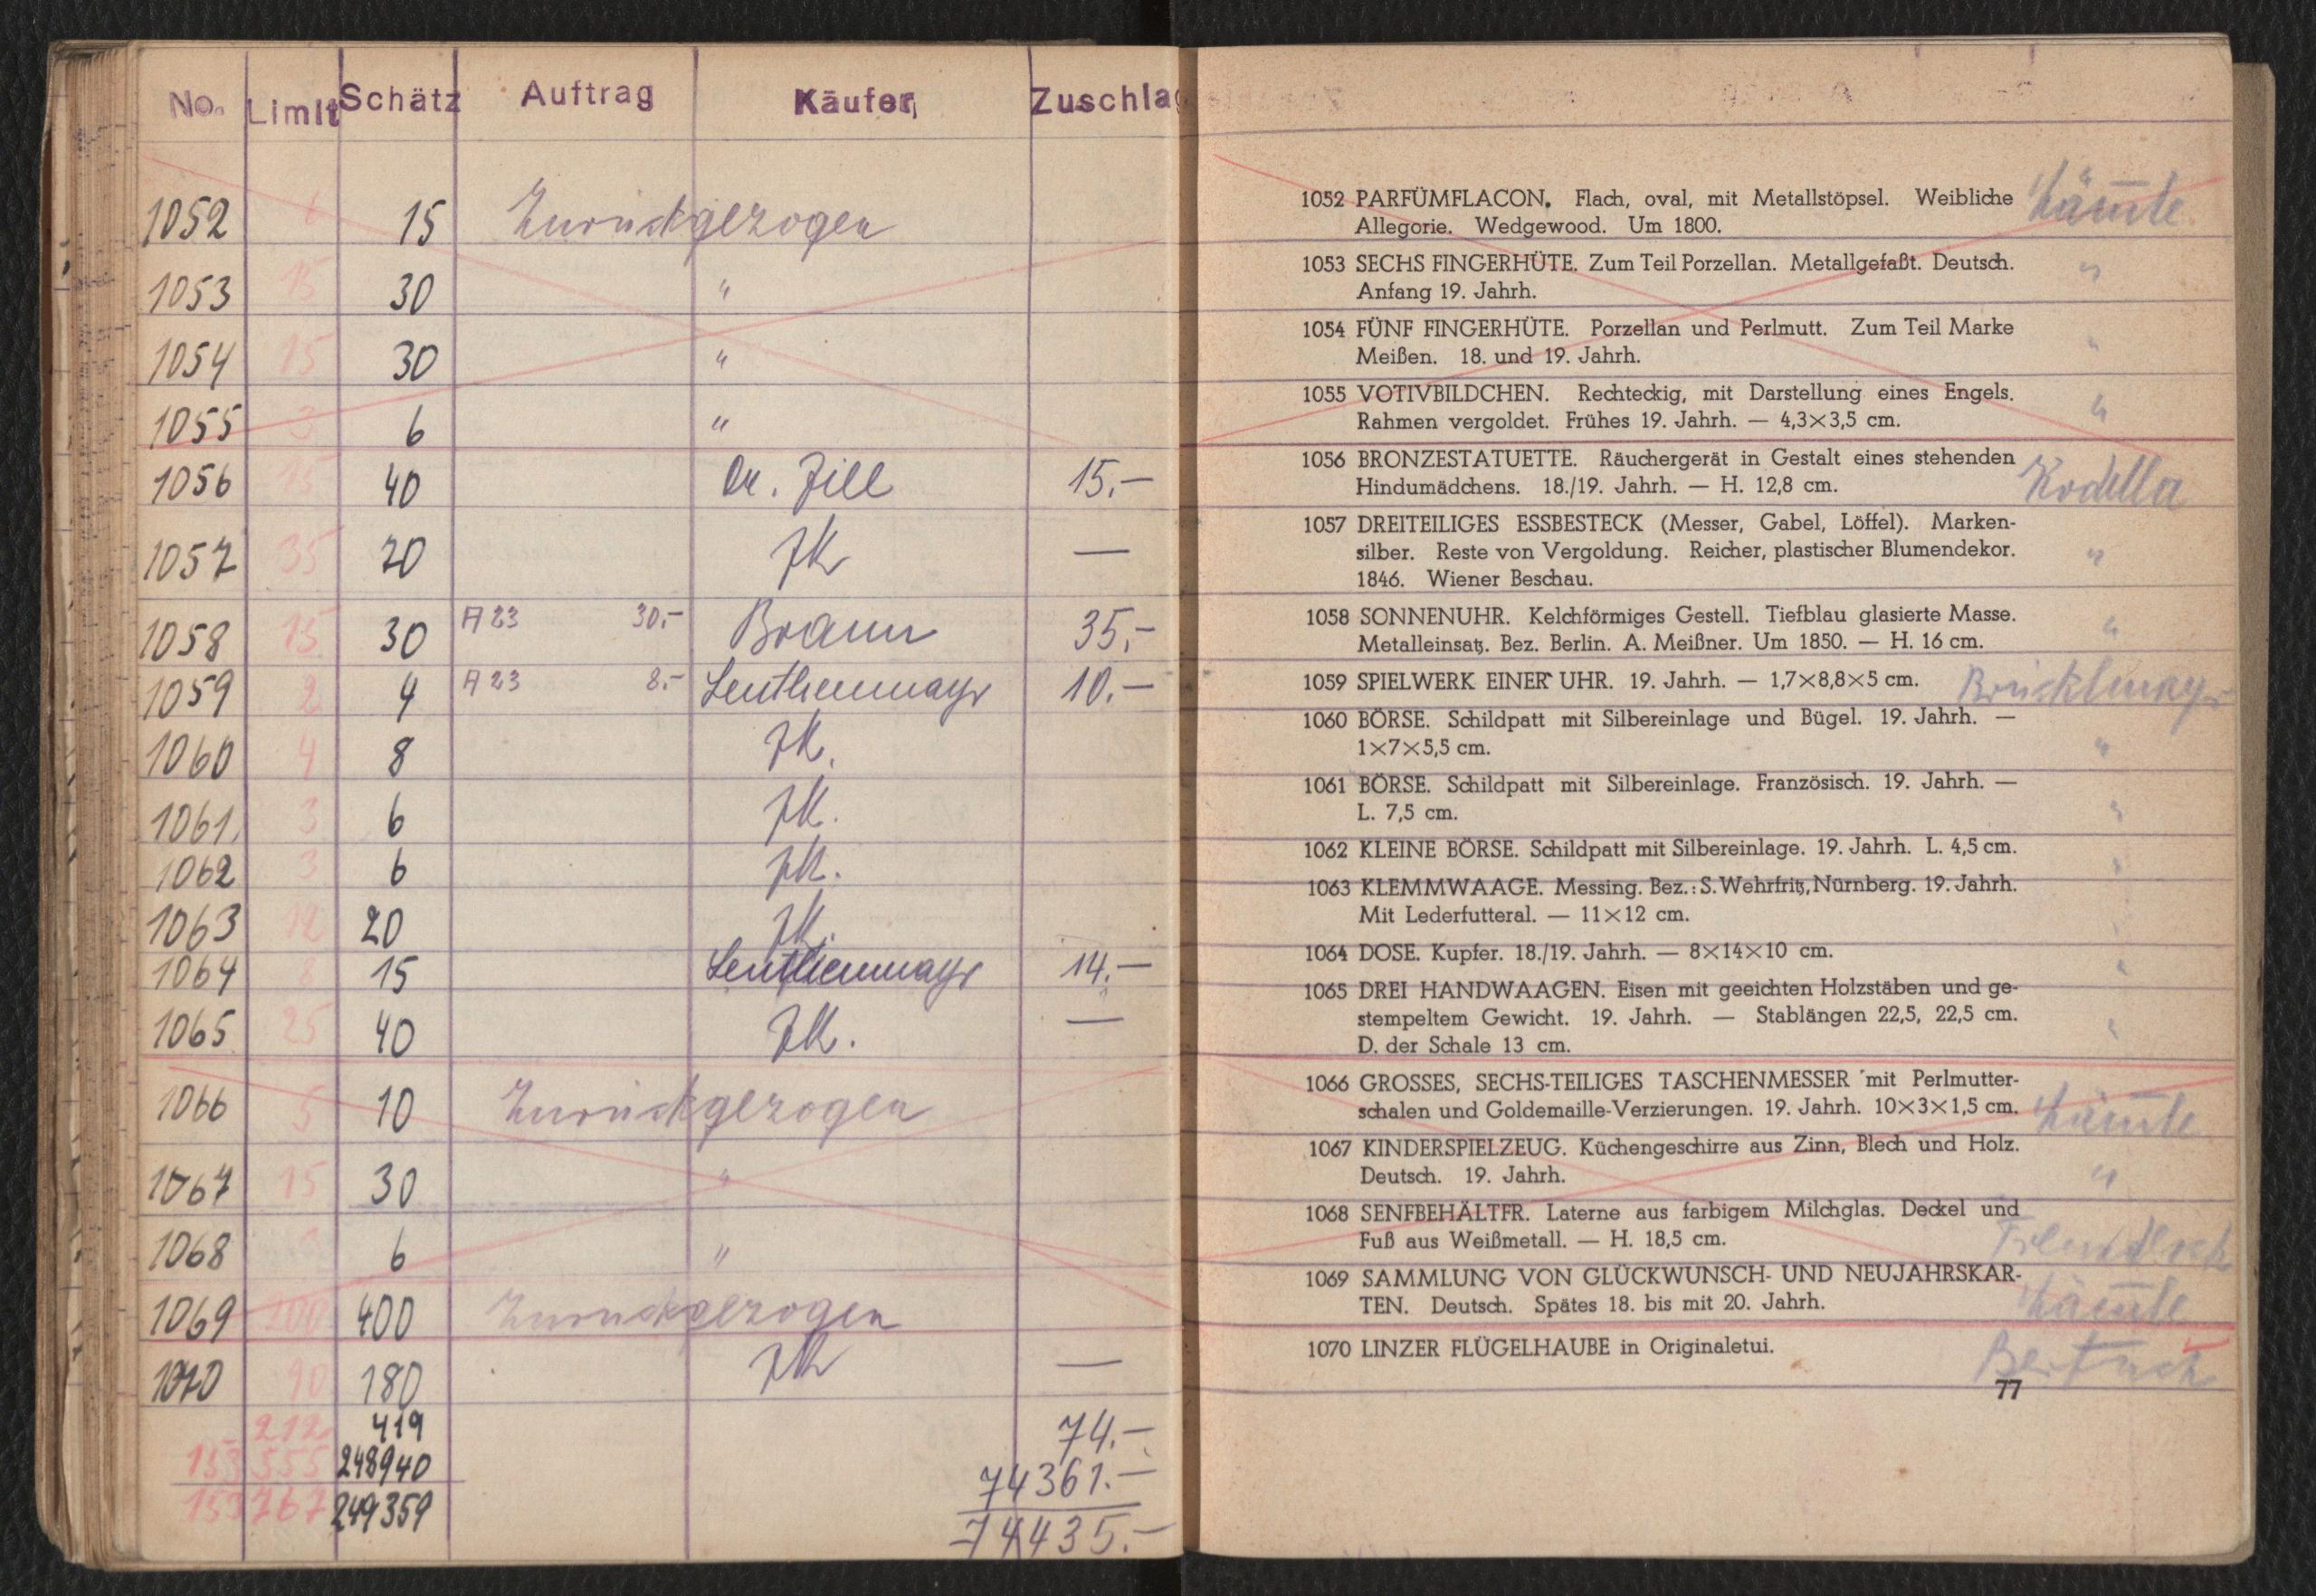 No. Limit Schätz Auftrag Käufer Zuschla
1052 6 15 Zurückgezogen
1053 15 30 "
1054 15 30 "
1055 3 6 "
1056 15 40 Dr. Zill 15.–
1057 35 70 ZK —
1058 15 30 A 23 30.– Braun 35.–
1059 2 4 A 23 8.– Leuthenmayr 10.–
1060 4 8 ZK.
1061 3 6 ZK.
1062 3 6 ZK.
1063 12 20 ZK.
1064 6 15 Leuthenmayr 14.–
1065 25 40 ZK. —
1066 5 10 Zurückgezogen
1067 15 30 "
1068 3 6 "
1069 200 400 Zurückgezogen
1070 90 180 ZK —
212 419 74.–
153 555 248940 74361.–
153767 249359 74435.–
1052 PARFÜMFLACON. Flach, oval, mit Metallstöpsel. Weibliche
Allegorie. Wedgewood. Um 1800.
1053 SECHS FINGERHÜTE. Zum Teil Porzellan. Metallgefaßt. Deutsch. "
Anfang 19. Jahrh.
1054 FÜNF FINGERHÜTE. Porzellan und Perlmutt. Zum Teil Marke "
Meißen. 18. und 19. Jahrh.
1055 VOTIVBILDCHEN. Rechteckig, mit Darstellung eines Engels. "
Rahmen vergoldet. Frühes 19. Jahrh. — 4,3×3,5 cm.
1056 BRONZESTATUETTE. Räuchergerät in Gestalt eines stehenden Kodella
Hindumädchens. 18./19. Jahrh. — H. 12,8 cm.
1057 DREITEILIGES ESSBESTECK (Messer, Gabel, Löffel). Marken-
silber. Reste von Vergoldung. Reicher, plastischer Blumendekor. "
1846. Wiener Beschau.
1058 SONNENUHR. Kelchförmiges Gestell. Tiefblau glasierte Masse. "
Metalleinsatz. Bez. Berlin. A. Meißner. Um 1850. — H. 16 cm.
1059 SPIELWERK EINER UHR. 19. Jahrh. — 1,7×8,8×5 cm. Brücklmayr
1060 BÖRSE. Schildpatt mit Silbereinlage und Bügel. 19. Jahrh. —
1×7×5,5 cm. "
1061 BÖRSE. Schildpatt mit Silbereinlage. Französisch. 19. Jahrh. —
L. 7,5 cm. "
1062 KLEINE BÖRSE. Schildpatt mit Silbereinlage. 19. Jahrh. L. 4,5 cm. "
1063 KLEMMWAAGE. Messing. Bez.: S. Wehrfritz, Nürnberg. 19. Jahrh. "
Mit Lederfutteral. — 11×12 cm.
1064 DOSE. Kupfer. 18./19. Jahrh. — 8×14×10 cm. "
1065 DREI HANDWAAGEN. Eisen mit geeichten Holzstäben und ge-
stempeltem Gewicht. 19. Jahrh. — Stablängen 22,5, 22,5 cm. "
D. der Schale 13 cm.
1066 GROSSES, SECHS-TEILIGES TASCHENMESSER mit Perlmutter-
schalen und Goldemaille-Verzierungen. 19. Jahrh. 10×3×1,5 cm.
1067 KINDERSPIELZEUG. Küchengeschirre aus Zinn, Blech und Holz. "
Deutsch. 19. Jahrh.
1068 SENFBEHÄLTFR. Laterne aus farbigem Milchglas. Deckel und
Fuß aus Weißmetall. — H. 18,5 cm.
1069 SAMMLUNG VON GLÜCKWUNSCH- UND NEUJAHRSKAR-
TEN. Deutsch. Spätes 18. bis mit 20. Jahrh.
1070 LINZER FLÜGELHAUBE in Originaletui. Bertuch
77